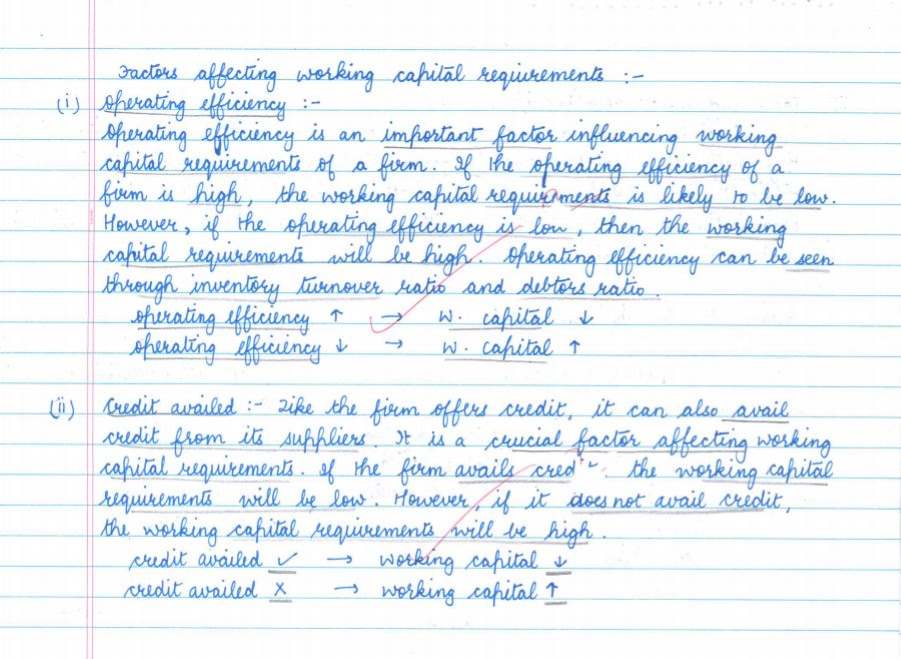 Factors affecting working capital requirements :-
(i) Operating efficiency :-
Operating efficiency is an important factor influencing working
capital requirements of a firm. If the operating efficiency of a
firm is high, the working capital requirements is likely to be low.
However, if the operating efficiency is low, then the working
capital requirements will be high. Operating efficiency can be seen
through inventory turnover ratio and debtors ratio.
operating efficiency ↑ → W. capital ↓
operating efficiency ↓ → W. capital ↑
(ii) Credit availed :- Like the firm offers credit, it can also avail
credit from its suppliers. It is a crucial factor affecting working
capital requirements. If the firm avails the working capital
requirements will be low. However, if it does not avail credit,
the working capital requirements will be high.
credit availed ✓ → working capital ↓
credit availed X → working capital ↑